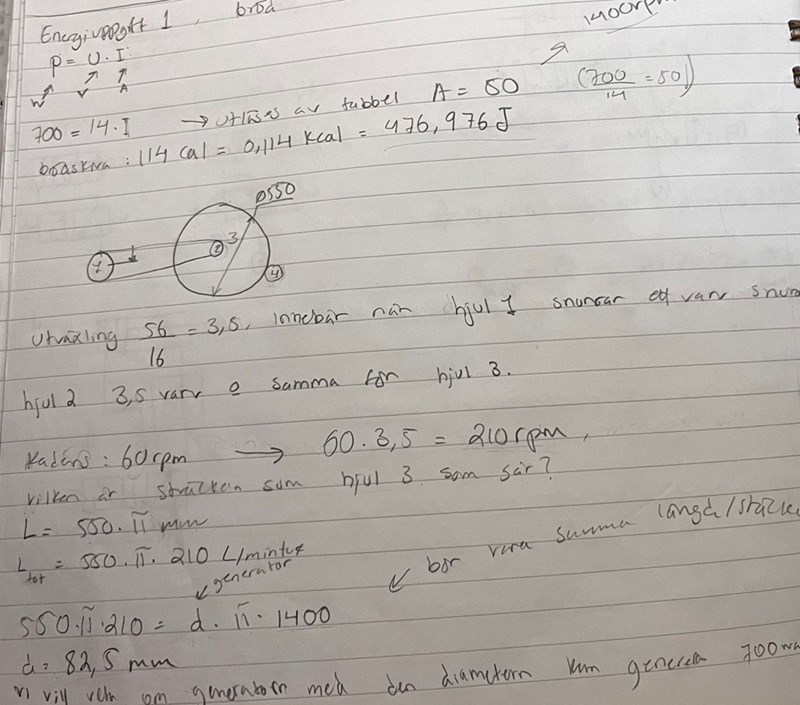 Energiuppgift 1, bröd
P = U · I
W V A
1400rpm
700 = 14 · I → utläses av tabbel A = 50 (700/14 = 50)
brödskiva : 114 cal = 0,114 kcal = 476,976 J
ø550
1 2 3 4
Utväxling 56/16 = 3,5, innebär när hjul 1 snurrar ett varv snurra
hjul 2 3,5 varv o samma för hjul 3.
Kadens : 60rpm → 60 · 3,5 = 210rpm,
vilken är sträckan som hjul 3 som
L = 550 · π mm
L tot = 550 · π · 210 L/mintut
generator bör vara samma längd/sträcka
550 · π · 210 = d · π · 1400
d = 82,5 mm
vi vill veta om generatorn med den diametern kan generera 700wa